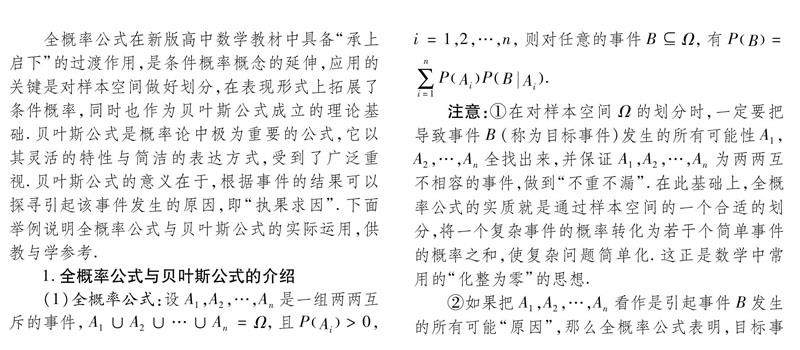 全概率公式在新版高中数学教材中具备“承上
启下”的过渡作用,是条件概率概念的延伸,应用的
关键是对样本空间做好划分,在表现形式上拓展了
条件概率,同时也作为贝叶斯公式成立的理论基
础.贝叶斯公式是概率论中极为重要的公式,它以
其灵活的特性与简洁的表达方式,受到了广泛重
视.贝叶斯公式的意义在于,根据事件的结果可以
探寻引起该事件发生的原因,即“执果求因”.下面
举例说明全概率公式与贝叶斯公式的实际运用,供
教与学参考.
1.全概率公式与贝叶斯公式的介绍
(1)全概率公式:设 A₁,A₂,⋯,Aₙ 是一组两两互
斥的事件,A₁∪A₂∪⋯∪Aₙ=Ω,且 P(Aᵢ)>0,
i=1,2,⋯,n,则对任意的事件 B⊆Ω,有 P(B)=
∑ⁿᵢ₌₁P(Aᵢ)P(B|Aᵢ).
注意:①在对样本空间 Ω 的划分时,一定要把
导致事件 B(称为目标事件)发生的所有可能性 A₁,
A₂,⋯,Aₙ 全找出来,并保证 A₁,A₂,⋯,Aₙ 为两两互
不相容的事件,做到“不重不漏”.在此基础上,全概
率公式的实质就是通过样本空间的一个合适的划
分,将一个复杂事件的概率转化为若干个简单事件
的概率之和,使复杂问题简单化.这正是数学中常
用的“化整为零”的思想.
②如果把 A₁,A₂,⋯,Aₙ 看作是引起事件 B 发生
的所有可能“原因”,那么全概率公式表明,目标事